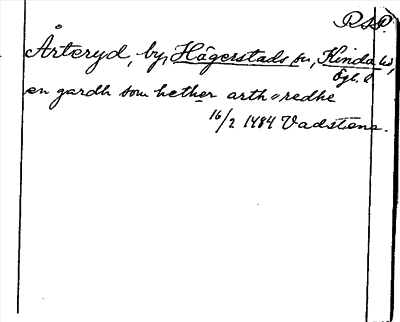 RAP.
Årteryd, by, Hägerstads sn, Kinda hd,
Ögl.
en gardh som hether arth=redhe
16/2 1484 Vadstena.